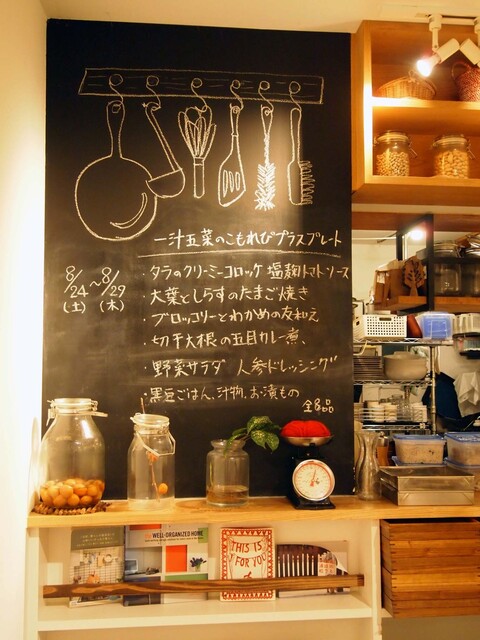 一汁五菜のこもれびプラスプレート
8/24〜8/29
(土) (木)
・タラのクリーミーコロッケ 塩麹トマトソース
・大葉としらすのたまご焼き
・ブロッコリーとわかめの友和え
・切干大根の五目カレー煮、
・野菜サラダ 人参ドレッシング
・黒豆ごはん、汁物、お漬もの
全8品
WELL-ORGANIZED HOME
THIS IS
FOR YOU